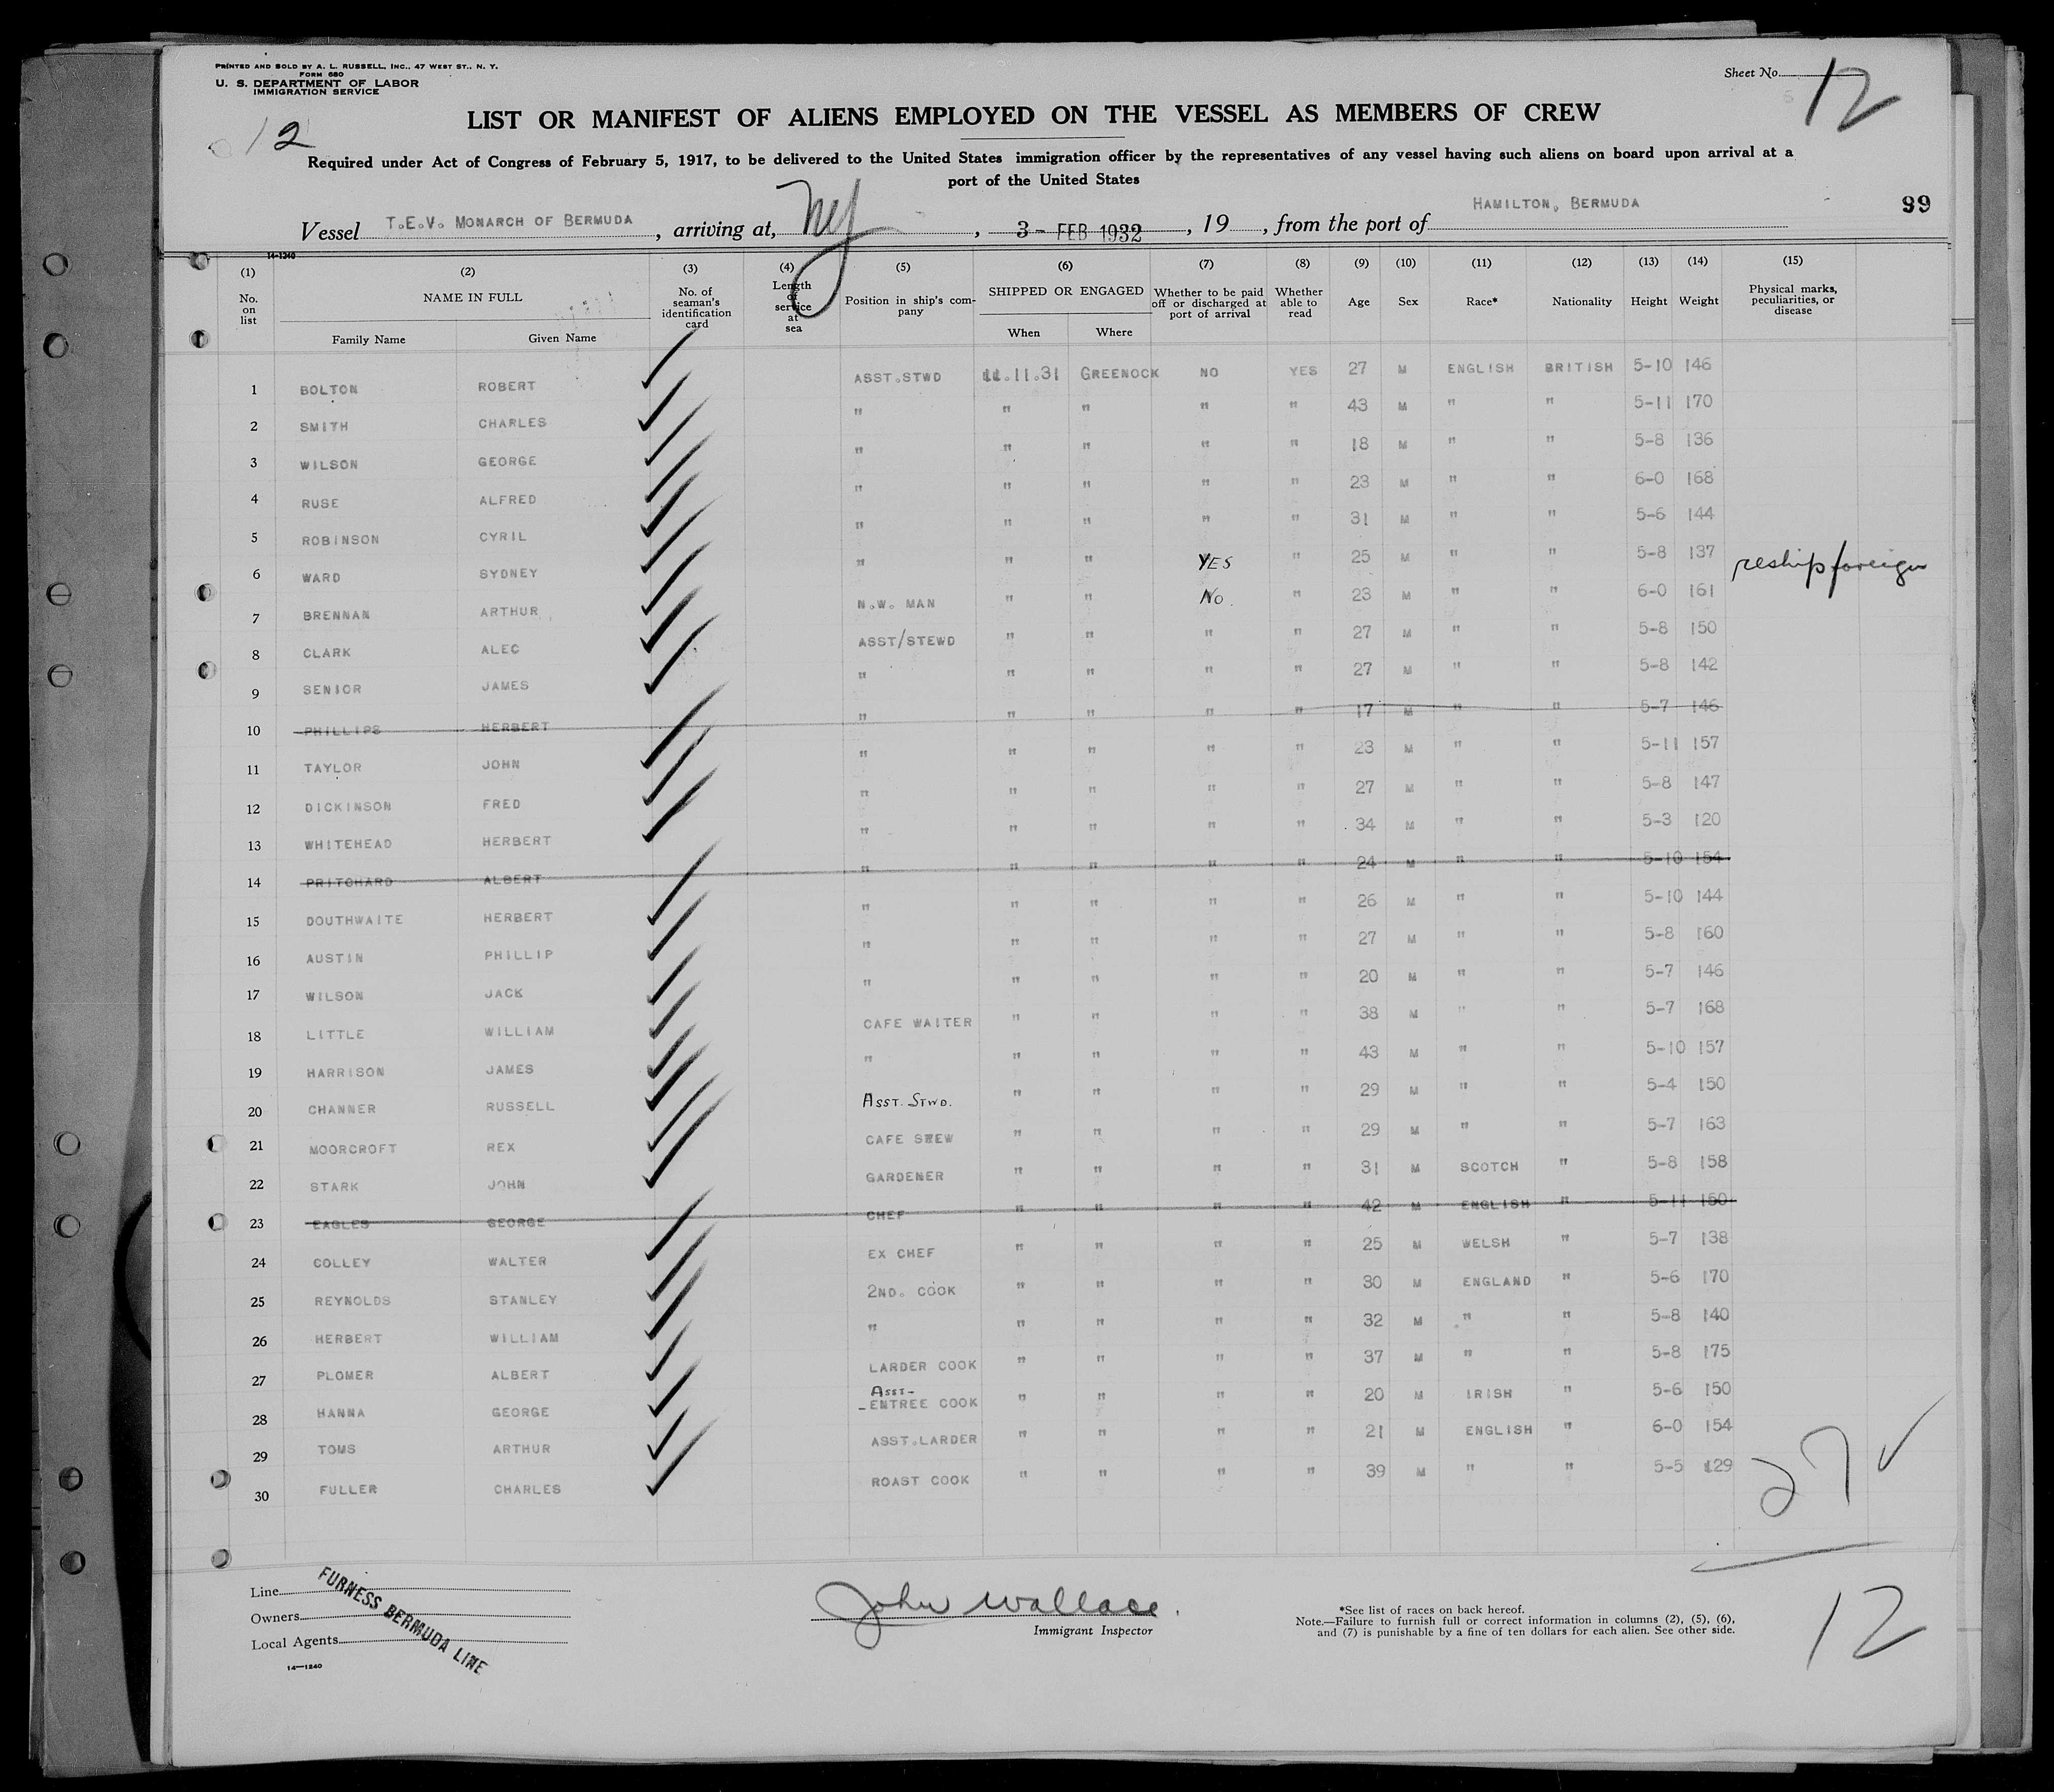 PRINTED AND SOLD BY A. L. RUSSELL, INC., 47 WEST ST., N. Y.
FORM 680
U. S. DEPARTMENT OF LABOR
IMMIGRATION SERVICE
Sheet No. 12
12
LIST OR MANIFEST OF ALIENS EMPLOYED ON THE VESSEL AS MEMBERS OF CREW
Required under Act of Congress of February 5, 1917, to be delivered to the United States immigration officer by the representatives of any vessel having such aliens on board upon arrival at a
port of the United States
99
Vessel T.E.V. MONARCH OF BERMUDA, arriving at, NY, 3 - FEB 1932, 19 , from the port of HAMILTON, BERMUDA
14-1240
(1) (2) (3) (4) (5) (6) (7) (8) (9) (10) (11) (12) (13) (14) (15)
No. on list NAME IN FULL Family Name Given Name No. of seaman's identification card Length of service at sea Position in ship's company SHIPPED OR ENGAGED When Where Whether to be paid off or discharged at port of arrival Whether able to read Age Sex Race* Nationality Height Weight Physical marks, peculiarities, or disease
1 BOLTON ROBERT ASST.STWD 11.11.31 GREENOCK NO YES 27 M ENGLISH BRITISH 5-10 146
2 SMITH CHARLES " " " " " 43 M " " 5-11 170
3 WILSON GEORGE " " " " " 18 M " " 5-8 136
4 RUSE ALFRED " " " " " 23 M " " 6-0 168
5 ROBINSON CYRIL " " " " " 31 M " " 5-6 144
6 WARD SYDNEY " " " YES " 25 M " " 5-8 137 reship foreign
7 BRENNAN ARTHUR N.W. MAN " " NO. " 23 M " " 6-0 161
8 CLARK ALEC ASST/STEWD " " " " 27 M " " 5-8 150
9 SENIOR JAMES " " " " " 27 M " " 5-8 142
10 PHILLIPS HERBERT " " " " " 17 M " " 5-7 146
11 TAYLOR JOHN " " " " " 23 M " " 5-11 157
12 DICKINSON FRED " " " " " 27 M " " 5-8 147
13 WHITEHEAD HERBERT " " " " " 34 M " " 5-3 120
14 PRITCHARD ALBERT " " " " " 24 M " " 5-10 154
15 DOUTHWAITE HERBERT " " " " " 26 M " " 5-10 144
16 AUSTIN PHILLIP " " " " " 27 M " " 5-8 160
17 WILSON JACK " " " " " 20 M " " 5-7 146
18 LITTLE WILLIAM CAFE WAITER " " " " 38 M " " 5-7 168
19 HARRISON JAMES " " " " " 43 M " " 5-10 157
20 CHANNER RUSSELL ASST. STWD. " " " " 29 M " " 5-4 150
21 MOORCROFT REX CAFE STEW " " " " 29 M " " 5-7 163
22 STARK JOHN GARDENER " " " " 31 M SCOTCH " 5-8 158
23 EAGLES GEORGE CHEF " " " " 42 M ENGLISH " 5-11 150
24 COLLEY WALTER EX CHEF " " " " 25 M WELSH " 5-7 138
25 REYNOLDS STANLEY 2ND. COOK " " " " 30 M ENGLAND " 5-6 170
26 HERBERT WILLIAM " " " " " 32 M " " 5-8 140
27 PLOMER ALBERT LARDER COOK " " " " 37 M " " 5-8 175
28 HANNA GEORGE ASST- ENTREE COOK " " " " 20 M IRISH " 5-6 150
29 TOMS ARTHUR ASST.LARDER " " " " 21 M ENGLISH " 6-0 154
30 FULLER CHARLES ROAST COOK " " " " 39 M " " 5-5 129
27 ✓
12
Line
Owners
Local Agents
FURNESS BERMUDA LINE
14—1240
John Wallace.
Immigrant Inspector
*See list of races on back hereof.
Note.—Failure to furnish full or correct information in columns (2), (5), (6),
and (7) is punishable by a fine of ten dollars for each alien. See other side.